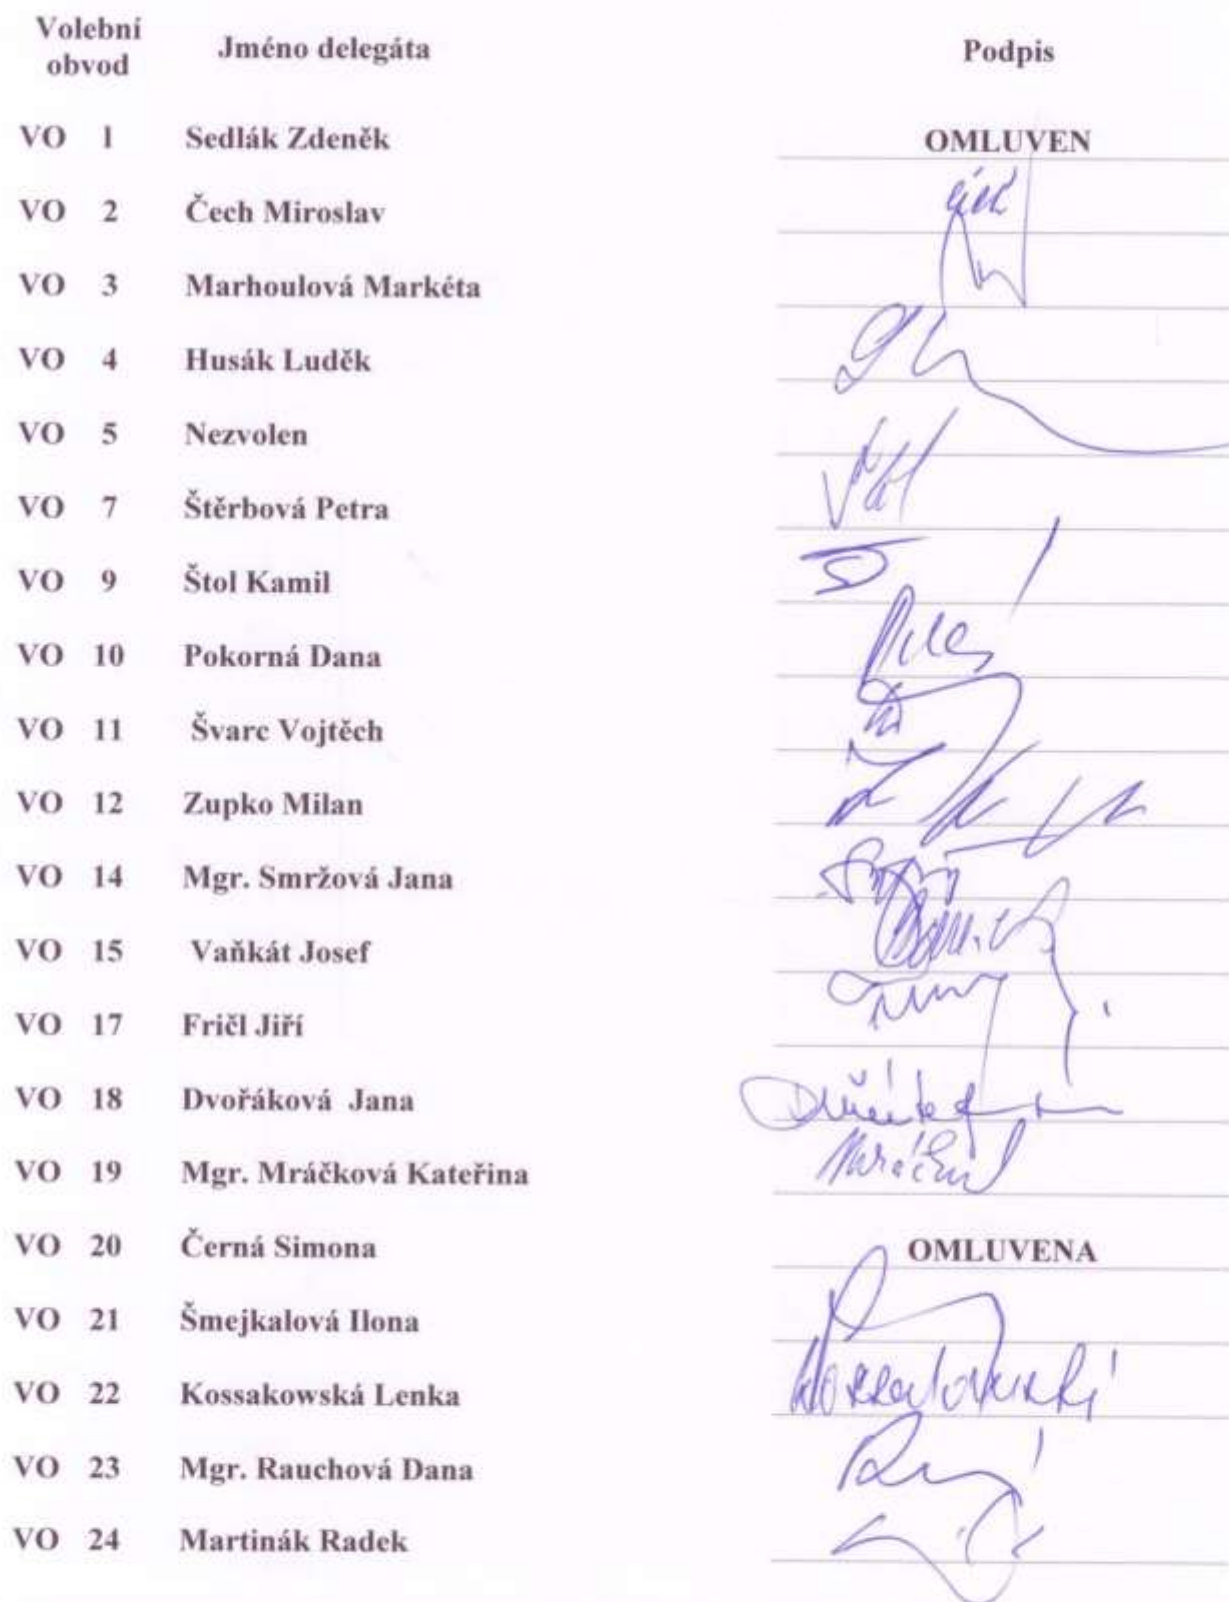 Volební obvod Jméno delegáta Podpis
VO 1 Sedlák Zdeněk OMLUVEN
VO 2 Čech Miroslav
VO 3 Marhoulová Markéta
VO 4 Husák Luděk
VO 5 Nezvolen
VO 7 Štěrbová Petra
VO 9 Štol Kamil
VO 10 Pokorná Dana
VO 11 Švarc Vojtěch
VO 12 Zupko Milan
VO 14 Mgr. Smržová Jana
VO 15 Vaňkát Josef
VO 17 Fričl Jiří
VO 18 Dvořáková Jana
VO 19 Mgr. Mráčková Kateřina
VO 20 Černá Simona OMLUVENA
VO 21 Šmejkalová Ilona
VO 22 Kossakowská Lenka
VO 23 Mgr. Rauchová Dana
VO 24 Martinák Radek